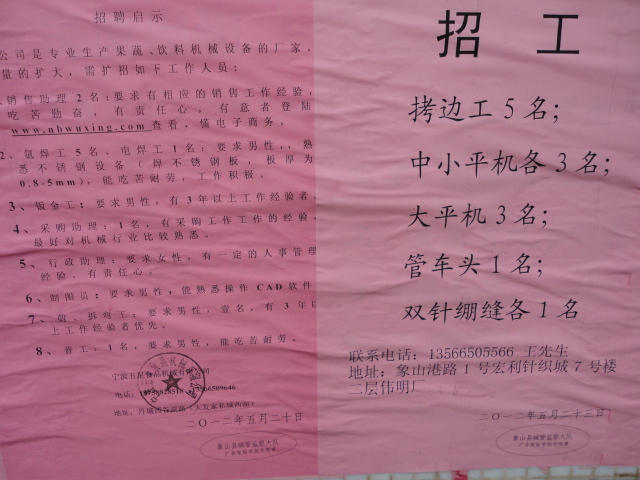 招聘启示
公司是专业生产果蔬、饮料机械设备的厂家，
量的扩大，需扩招如下工作人员：
销售助理2名：要求有相应的销售工作经验，
吃苦勤奋，有责任心。有意者登陆
www.nbwuxing.com查看，懂电子商务。
2、氩焊工5名、电焊工1名：要求男性，，熟
悉不锈钢设备（焊不锈钢板，板厚为
0.8-5mm），能吃苦耐劳，工作积极。
3、钣金工：要求男性，有3年以上工作经验者。
4、采购助理：1名，有采购工作工作的经验，
最好对机械行业比较熟悉。
5、行政助理：要求女性，有一定的人事管理
经验，有责任心。
6、制图员：要求男性，能熟悉操作CAD软件
7、剪、拆弯工：要求男性，壹名，有3年以
上工作经验者优先。
8、普工：1名，要求男性，能吃苦耐劳。
宁波五星食品机械有限公司
电话：
地址：丹城西谷新路（大发家私城西面）
二〇一二年五月二十日
象山县城管监察大队
招 工
拷边工5名；
中小平机各3名；
大平机3名；
管车头1名；
双针绷缝各1名
联系电话：13566505566 王先生
地址：象山港路1号宏利针织城7号楼
二层伟明厂
二〇一二年五月二十三日
象山县城管监察大队